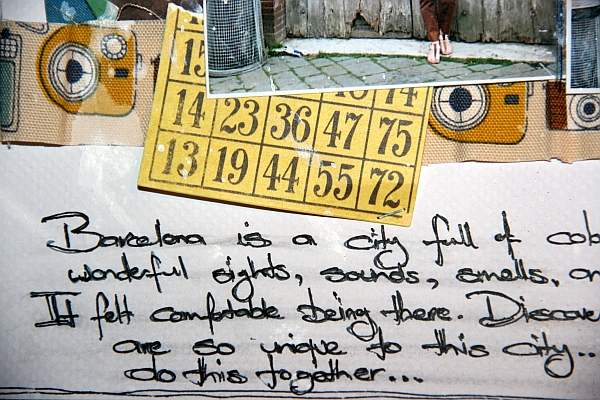 14 23 36 47 75
13 19 44 55 72
Barcelona is a city full of
wonderful sights, sounds, smells,
It felt comfortable being there.
are so unique to this city..
do this together...